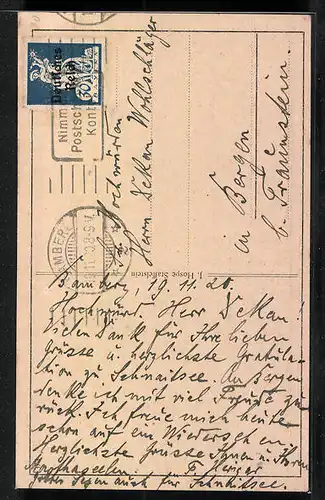 Deutsches
Reich
30
Nimm
Postsch
Kont
BAMBERG
8-9 V.
Sr. Hochwürden
Herrn Dekan Wohlschläger
in Bergen
b. Traunstein.
J. Hospe Staffelstein
Bamberg, 19. 11. 20.
Hochwürd. Herr Dekan!
Vielen Dank für Ihre lieben
Grüsse u. herzlichste Gratula-
tion zu Schnaitsee. An Bergen
denke ich mit viel Freude zu-
rück. Ich freue mich heute
schon auf ein Wiedersehen.
Herzlichste Grüsse Ihnen u. Ihren
Segen auch für Schnaitsee.